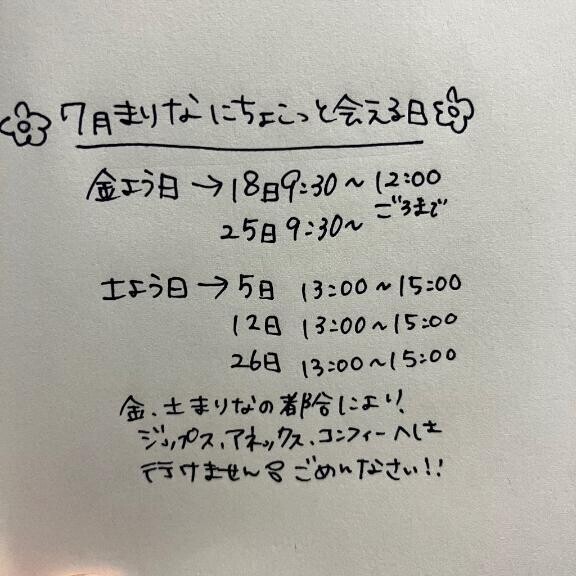 7月まりなにちょこっと会える日
金よう日→18日9:30〜12:00
ごろまで
25日9:30〜
土よう日→5日 13:00〜15:00
12日 13:00〜15:00
26日 13:00〜15:00
金、土まりなの都合により
ジップス、アネックス、コンフィーへは
行けません ごめんなさい!!